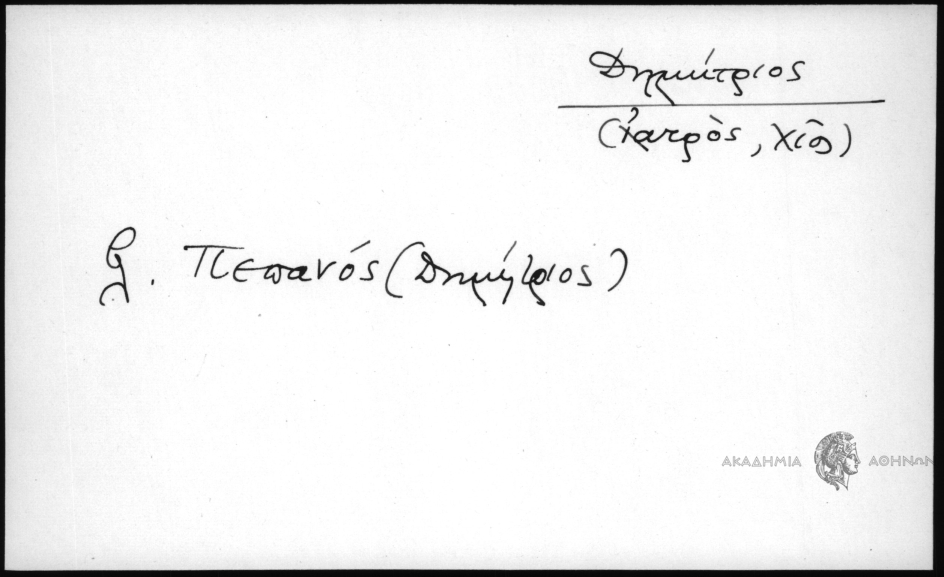 Δημήτριος
(ἰατρὸς, Χῖος)
βλ. Πεπανός (Δημήτριος)
ΑΚΑΔΗΜΙΑ ΑΘΗΝΩΝ